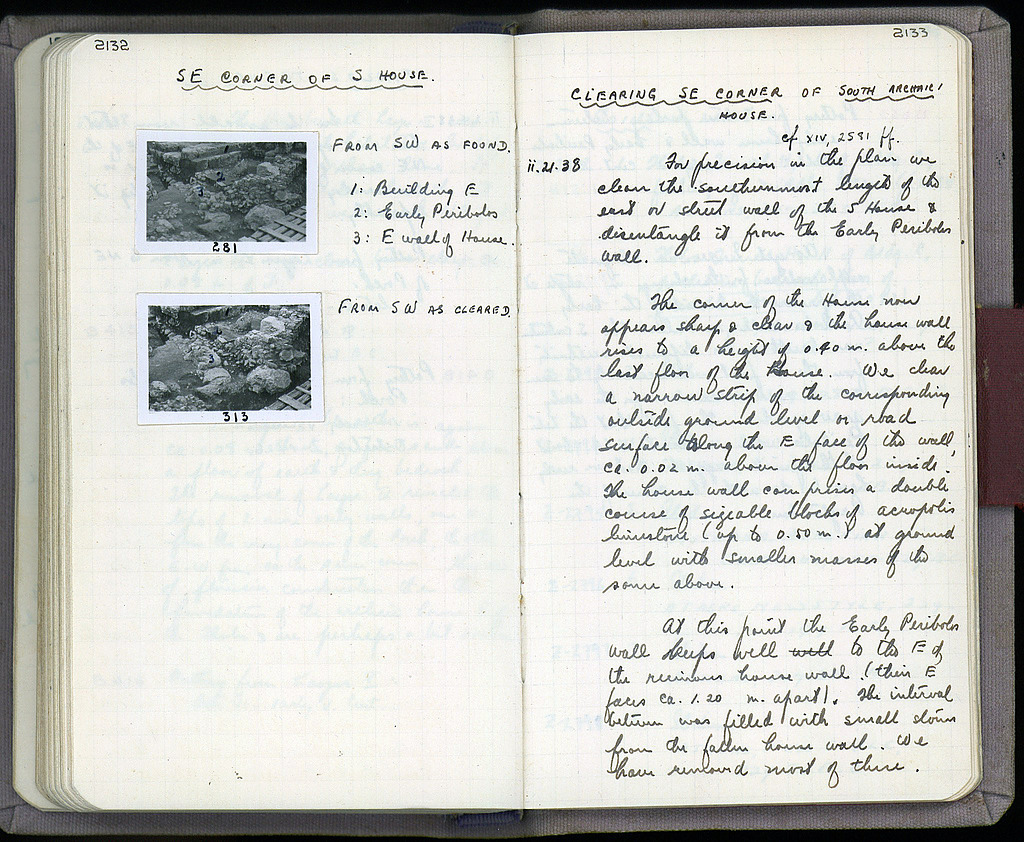 2132
SE CORNER OF S HOUSE.
FROM SW AS FOUND.
1: Building E
2: Early Peribolos
3: E wall of House.
281
FROM SW AS CLEARED.
313
2133
CLEARING SE CORNER OF SOUTH ARCHAIC
HOUSE.
cf XIV, 2581 ff.
ii.21.38 For precision in the plan we
clean the southernmost length of the
east or street wall of the S House &
disentangle it from the Early Peribolos
wall.
The corner of the House now
appears sharp & clear & the house wall
rises to a height of 0.40 m. above the
last floor of the House. We clear
a narrow strip of the corresponding
outside ground level or road
surface along the E face of the wall,
ca. 0.02 m. above the floor inside.
The house wall comprises a double
course of sizeable blocks of acropolis
limestone (up to 0.50 m.) at ground
level with smaller masses of the
same above.
At this point the Early Peribolos
wall keeps well will to the E of
the ruinous house wall. (their E
faces ca. 1.20 m. apart). The interval
between was filled with small stones
from the fallen house wall. We
have removed most of these.